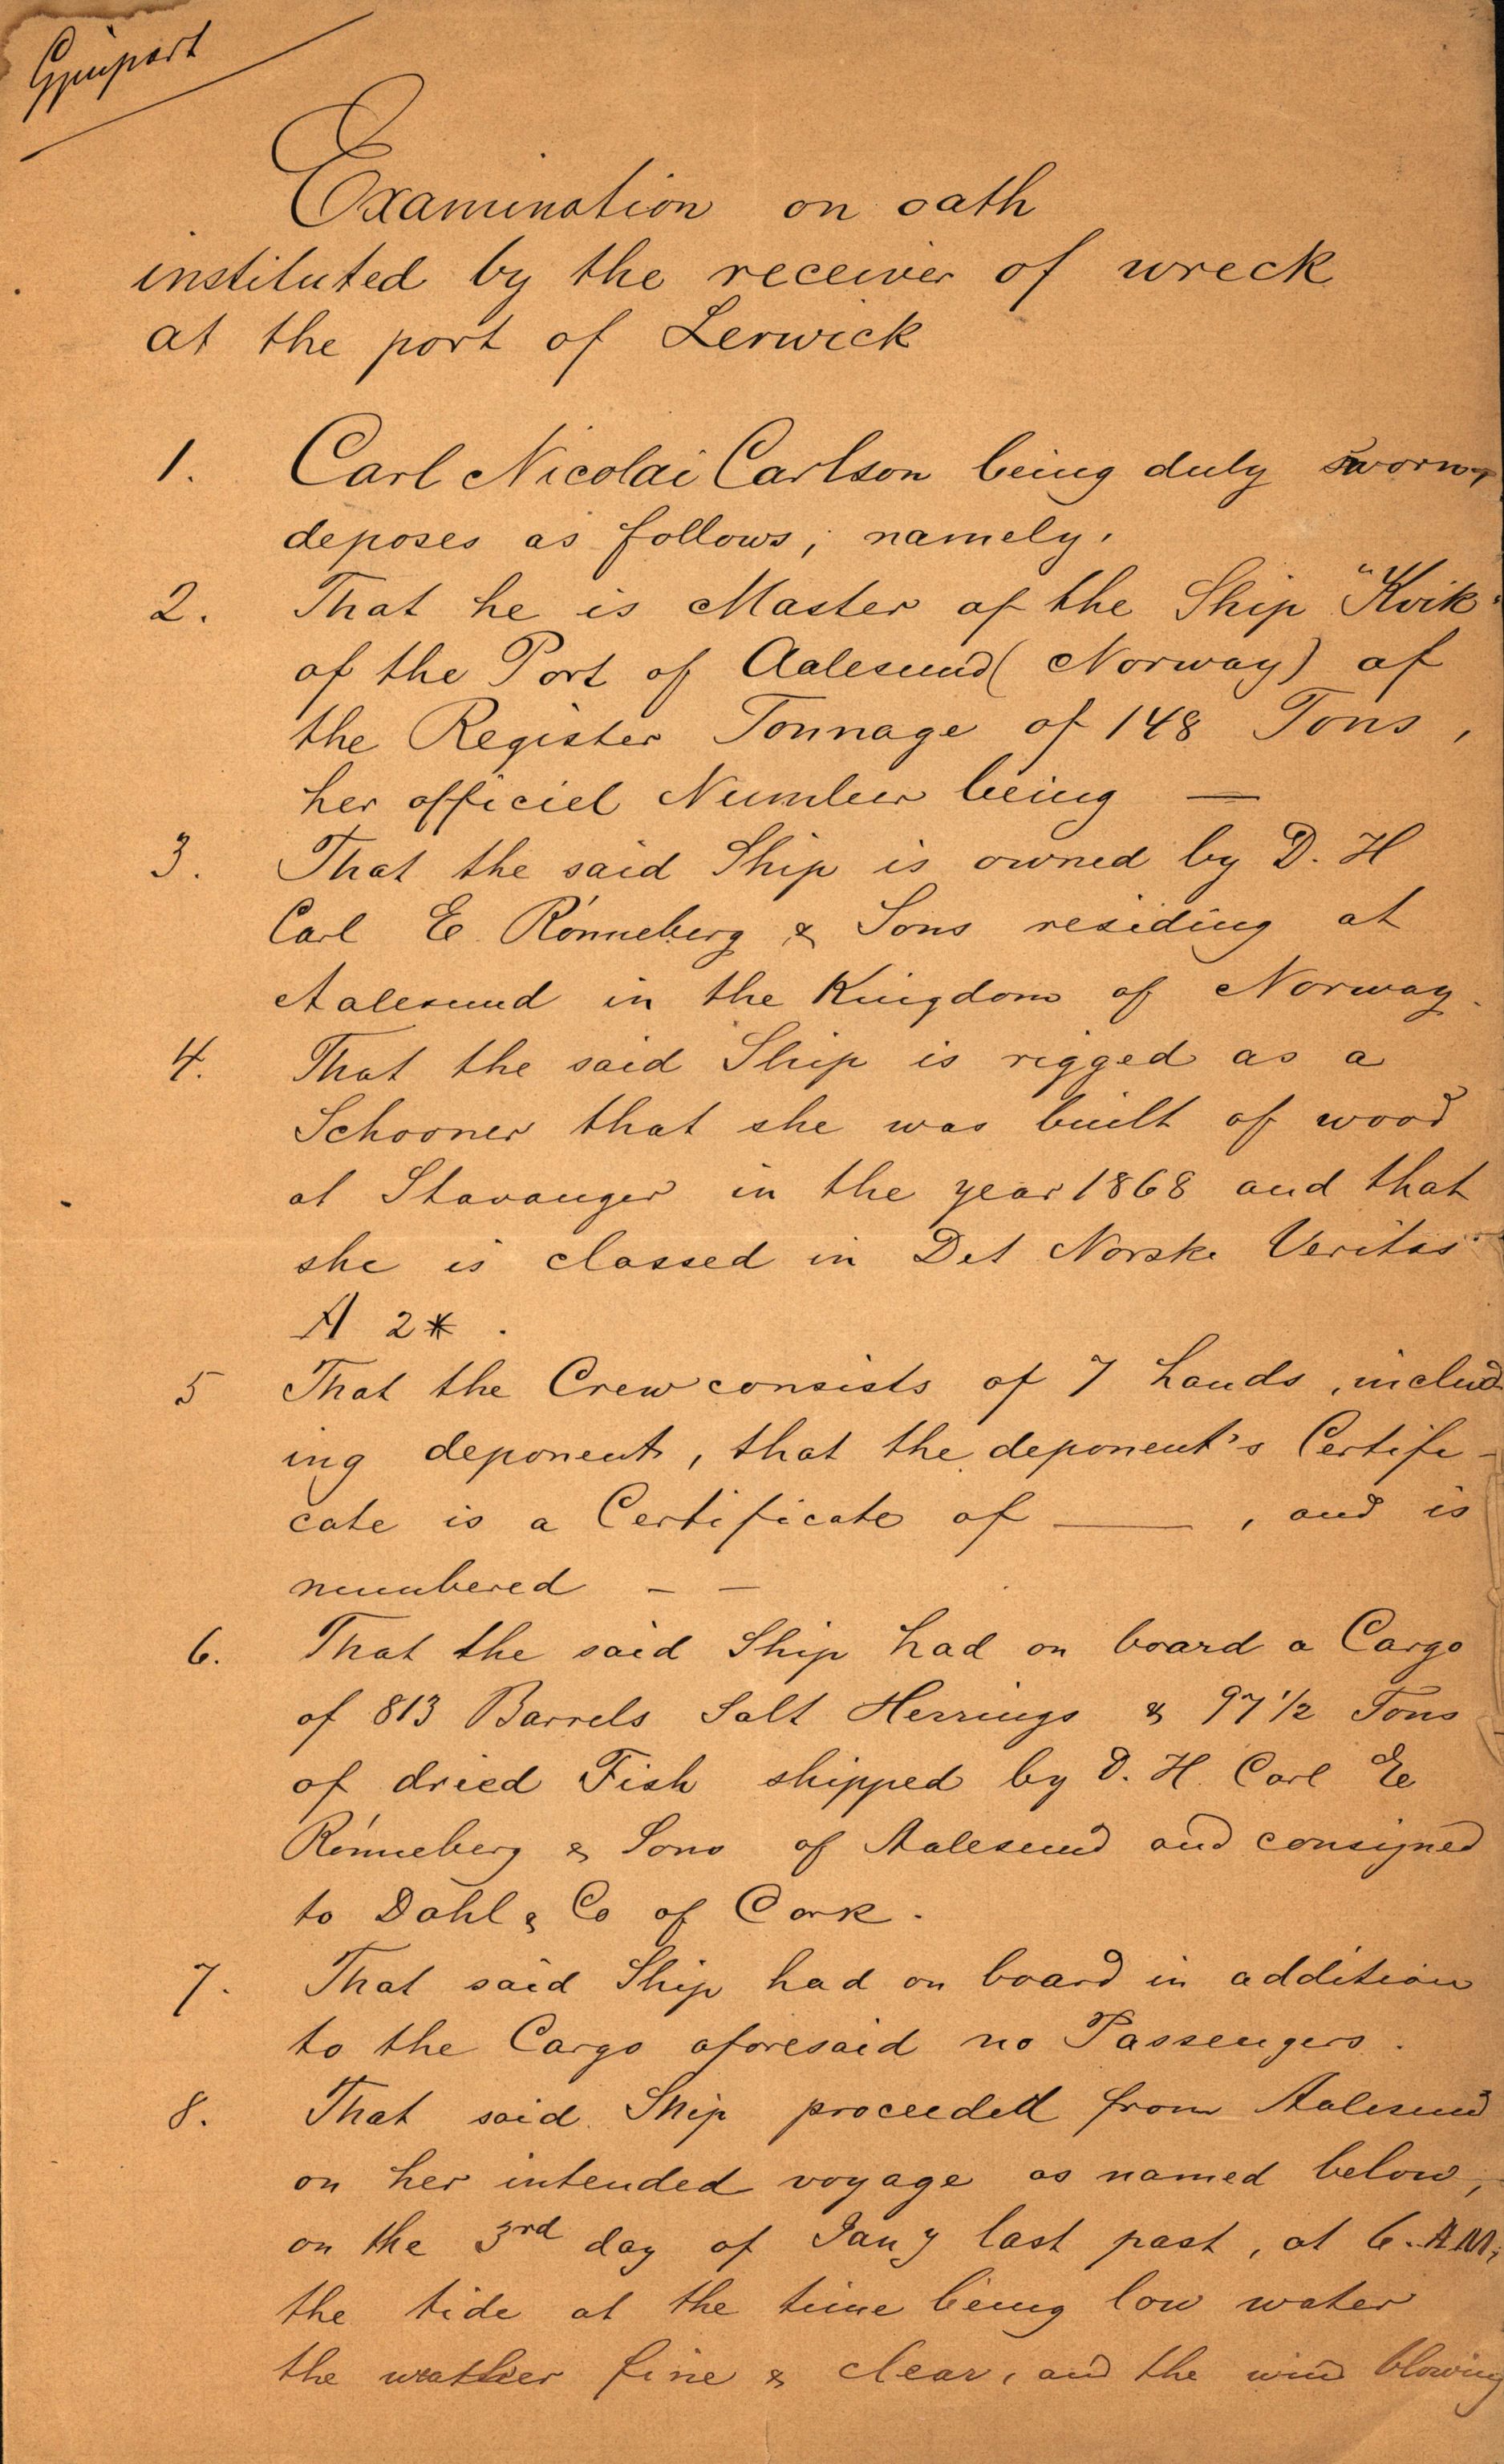 Gjenpart
Examination on oath
instituted by the receiver of wreck
at the port of Lerwick
1. Carl Nicolai Carlson being duly sworn,
deposes as follows; namely,
2. That he is Master of the Ship "Kvik"
of the Port of Aalesund (Norway) of
the Register Tonnage of 148 Tons,
her officiel Number being —
3. That the said Ship is owned by D. H
Carl E. Rönneberg & Sons residing at
Aalesund in the Kingdom of Norway.
4. That the said Ship is rigged as a
Schooner that she was built of wood
at Stavanger in the year 1868 and that
she is classed in Det Norske Veritas
A 2* .
5 That the Crew consists of 7 hands, includ
ing deponent, that the deponent's Certifi-
cate is a Certificate of ——, and is
numbered — —
6. That the said Ship had on board a Cargo
of 813 Barrels Salt Herrings & 97 1/2 Tons
of dried Fish shipped by D. H. Carl E
Rönneberg & Sons of Aalesund and consigned
to Dahl & Co of Cork.
7. That said Ship had on board in addition
to the Cargo aforesaid no Passengers.
8. That said Ship proceeded from Aalesund
on her intended voyage as named below,
on the 3rd day of Jany last past, at 6. AM,
the tide at the time being low water
the weather fine & clear, and the wind blowing